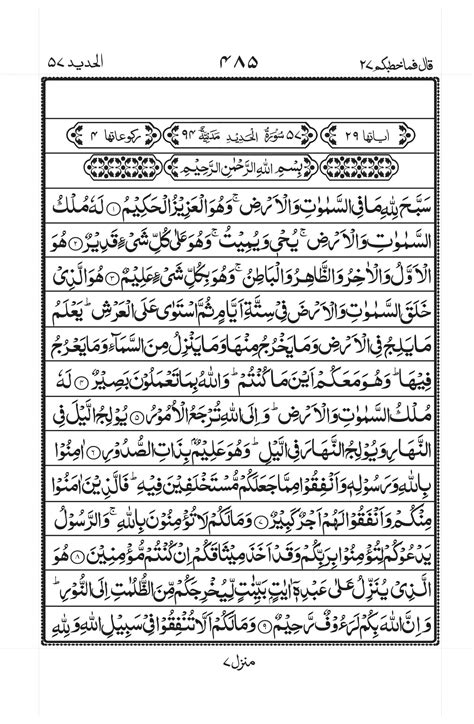 قال فماخطبكم ٢٧ ٤٨٥ الحديد ٥٧
اٰیاتها ٢٩ ٥٧ سُوْرَةُ الْحَدِیْدِ مَدَنِیَّةٌ ٩٤ رکوعاتها ٤
بِسْمِ اللّٰهِ الرَّحْمٰنِ الرَّحِیْمِ
سَبَّحَ لِلّٰهِ مَا فِی السَّمٰوٰتِ وَالْاَرْضِ ۚ وَهُوَ الْعَزِیْزُ الْحَكِیْمُ ﴿١﴾ لَهٗ مُلْكُ
السَّمٰوٰتِ وَالْاَرْضِ ۚ یُحْیٖ وَیُمِیْتُ ۚ وَهُوَ عَلٰی كُلِّ شَیْءٍ قَدِیْرٌ ﴿٢﴾ هُوَ
الْاَوَّلُ وَالْاٰخِرُ وَالظَّاهِرُ وَالْبَاطِنُ ۚ وَهُوَ بِكُلِّ شَیْءٍ عَلِیْمٌ ﴿٣﴾ هُوَ الَّذِیْ
خَلَقَ السَّمٰوٰتِ وَالْاَرْضَ فِیْ سِتَّةِ اَیَّامٍ ثُمَّ اسْتَوٰی عَلَی الْعَرْشِ ؕ یَعْلَمُ
مَا یَلِجُ فِی الْاَرْضِ وَمَا یَخْرُجُ مِنْهَا وَمَا یَنْزِلُ مِنَ السَّمَآءِ وَمَا یَعْرُجُ
فِیْهَا ؕ وَهُوَ مَعَكُمْ اَیْنَ مَا كُنْتُمْ ؕ وَاللّٰهُ بِمَا تَعْمَلُوْنَ بَصِیْرٌ ﴿٤﴾ لَهٗ
مُلْكُ السَّمٰوٰتِ وَالْاَرْضِ ؕ وَاِلَی اللّٰهِ تُرْجَعُ الْاُمُوْرُ ﴿٥﴾ یُوْلِجُ الَّیْلَ فِی
النَّهَارِ وَیُوْلِجُ النَّهَارَ فِی الَّیْلِ ؕ وَهُوَ عَلِیْمٌۢ بِذَاتِ الصُّدُوْرِ ﴿٦﴾ اٰمِنُوْا
بِاللّٰهِ وَرَسُوْلِهٖ وَاَنْفِقُوْا مِمَّا جَعَلَكُمْ مُّسْتَخْلَفِیْنَ فِیْهِ ؕ فَالَّذِیْنَ اٰمَنُوْا
مِنْكُمْ وَاَنْفَقُوْا لَهُمْ اَجْرٌ كَبِیْرٌ ﴿٧﴾ وَمَا لَكُمْ لَا تُؤْمِنُوْنَ بِاللّٰهِ ۚ وَالرَّسُوْلُ
یَدْعُوْكُمْ لِتُؤْمِنُوْا بِرَبِّكُمْ وَقَدْ اَخَذَ مِیْثَاقَكُمْ اِنْ كُنْتُمْ مُّؤْمِنِیْنَ ﴿٨﴾ هُوَ
الَّذِیْ یُنَزِّلُ عَلٰی عَبْدِهٖۤ اٰیٰتٍۭ بَیِّنٰتٍ لِّیُخْرِجَكُمْ مِّنَ الظُّلُمٰتِ اِلَی النُّوْرِ ؕ
وَاِنَّ اللّٰهَ بِكُمْ لَرَءُوْفٌ رَّحِیْمٌ ﴿٩﴾ وَمَا لَكُمْ اَلَّا تُنْفِقُوْا فِیْ سَبِیْلِ اللّٰهِ وَلِلّٰهِ
منزل ٧